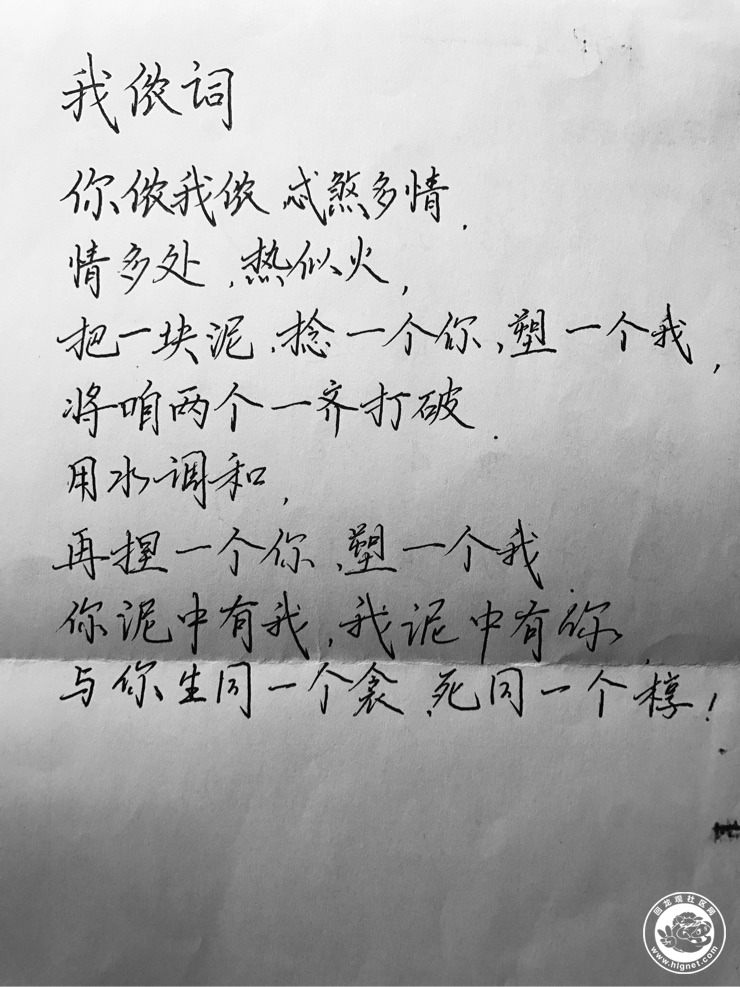 我侬词
你侬我侬 忒煞多情.
情多处,热似火,
把一块泥,捻一个你,塑一个我,
将咱两个一齐打破.
用水调和,
再捏一个你,塑一个我.
你泥中有我,我泥中有你,
与你生同一个衾,死同一个椁!
回龙观社区网
www.hlgnet.com